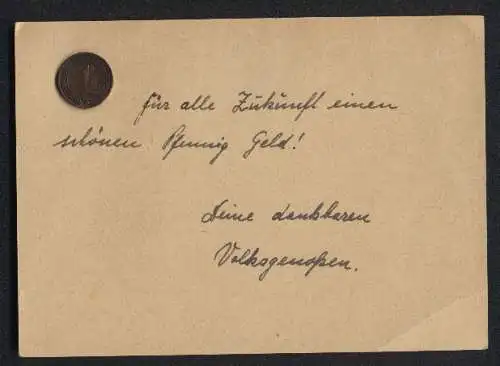 für alle Zukunft einen
schönen Pfennig Geld!
Deine dankbaren
Volksgenoßen.